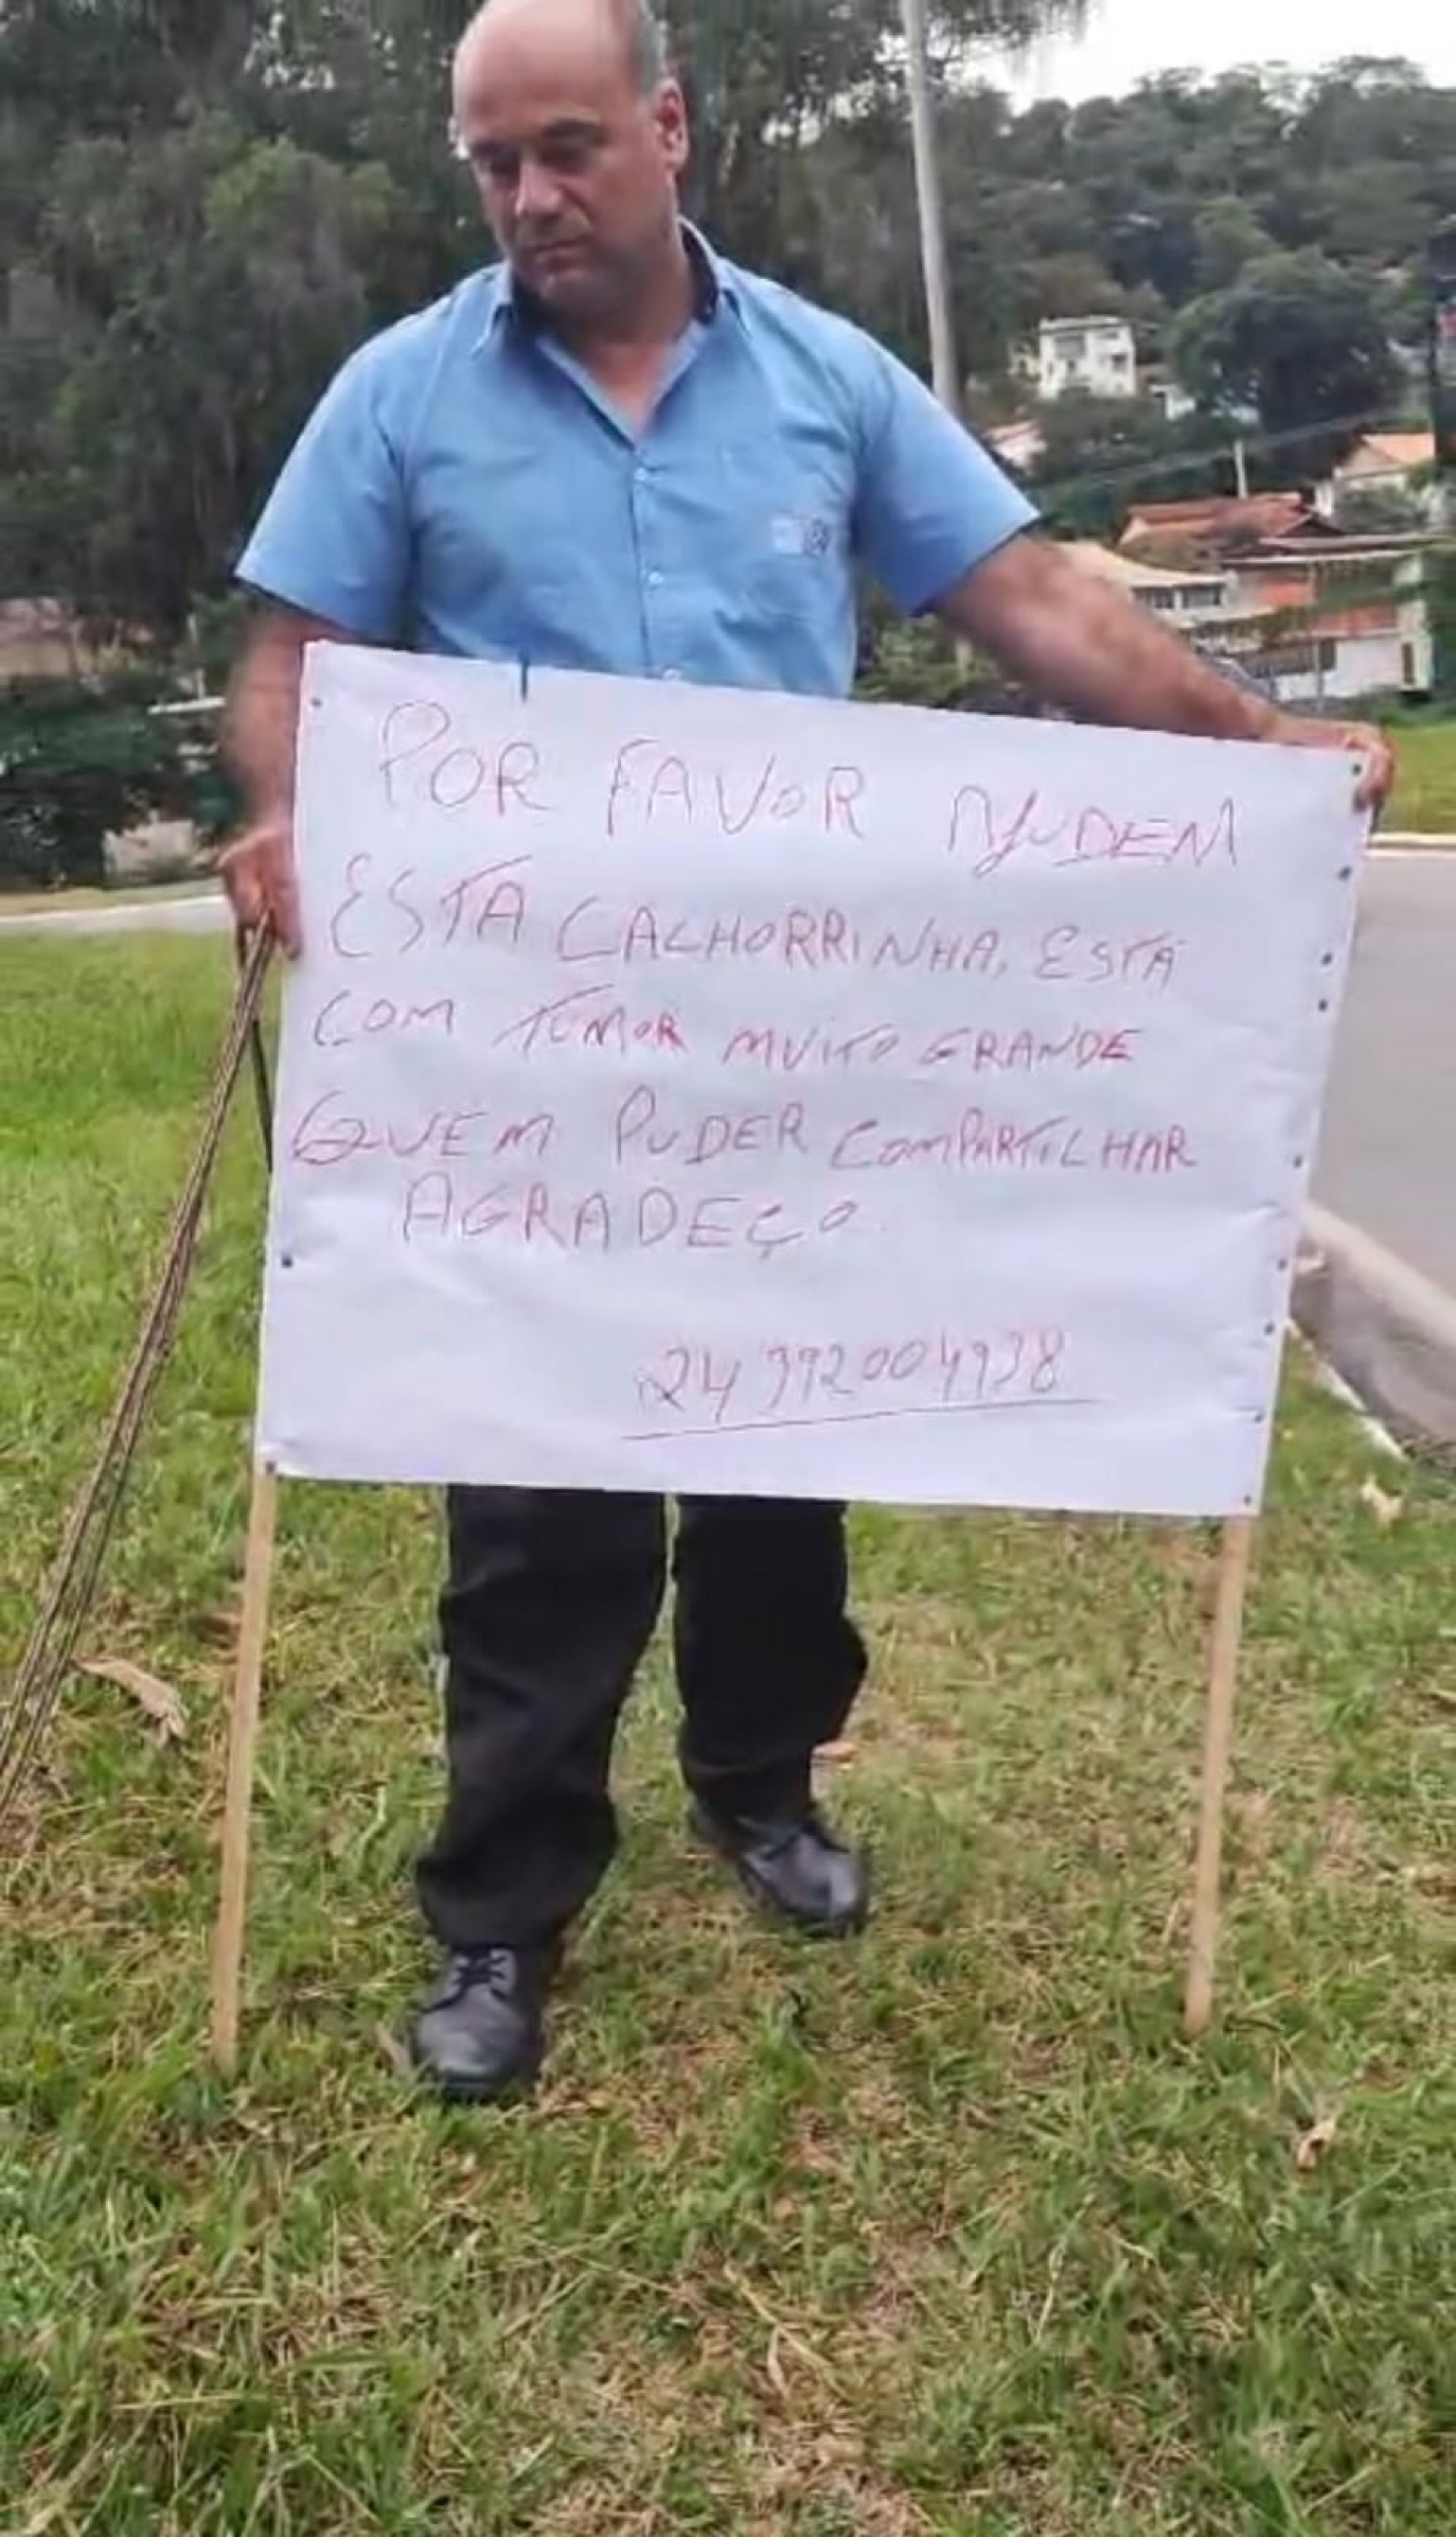 POR FAVOR AJUDEM
ESTA CALHORRINHA, ESTÁ
COM TUMOR MUITO GRANDE
QUEM PUDER COMPARTILHAR
AGRADEÇO
24 992004938